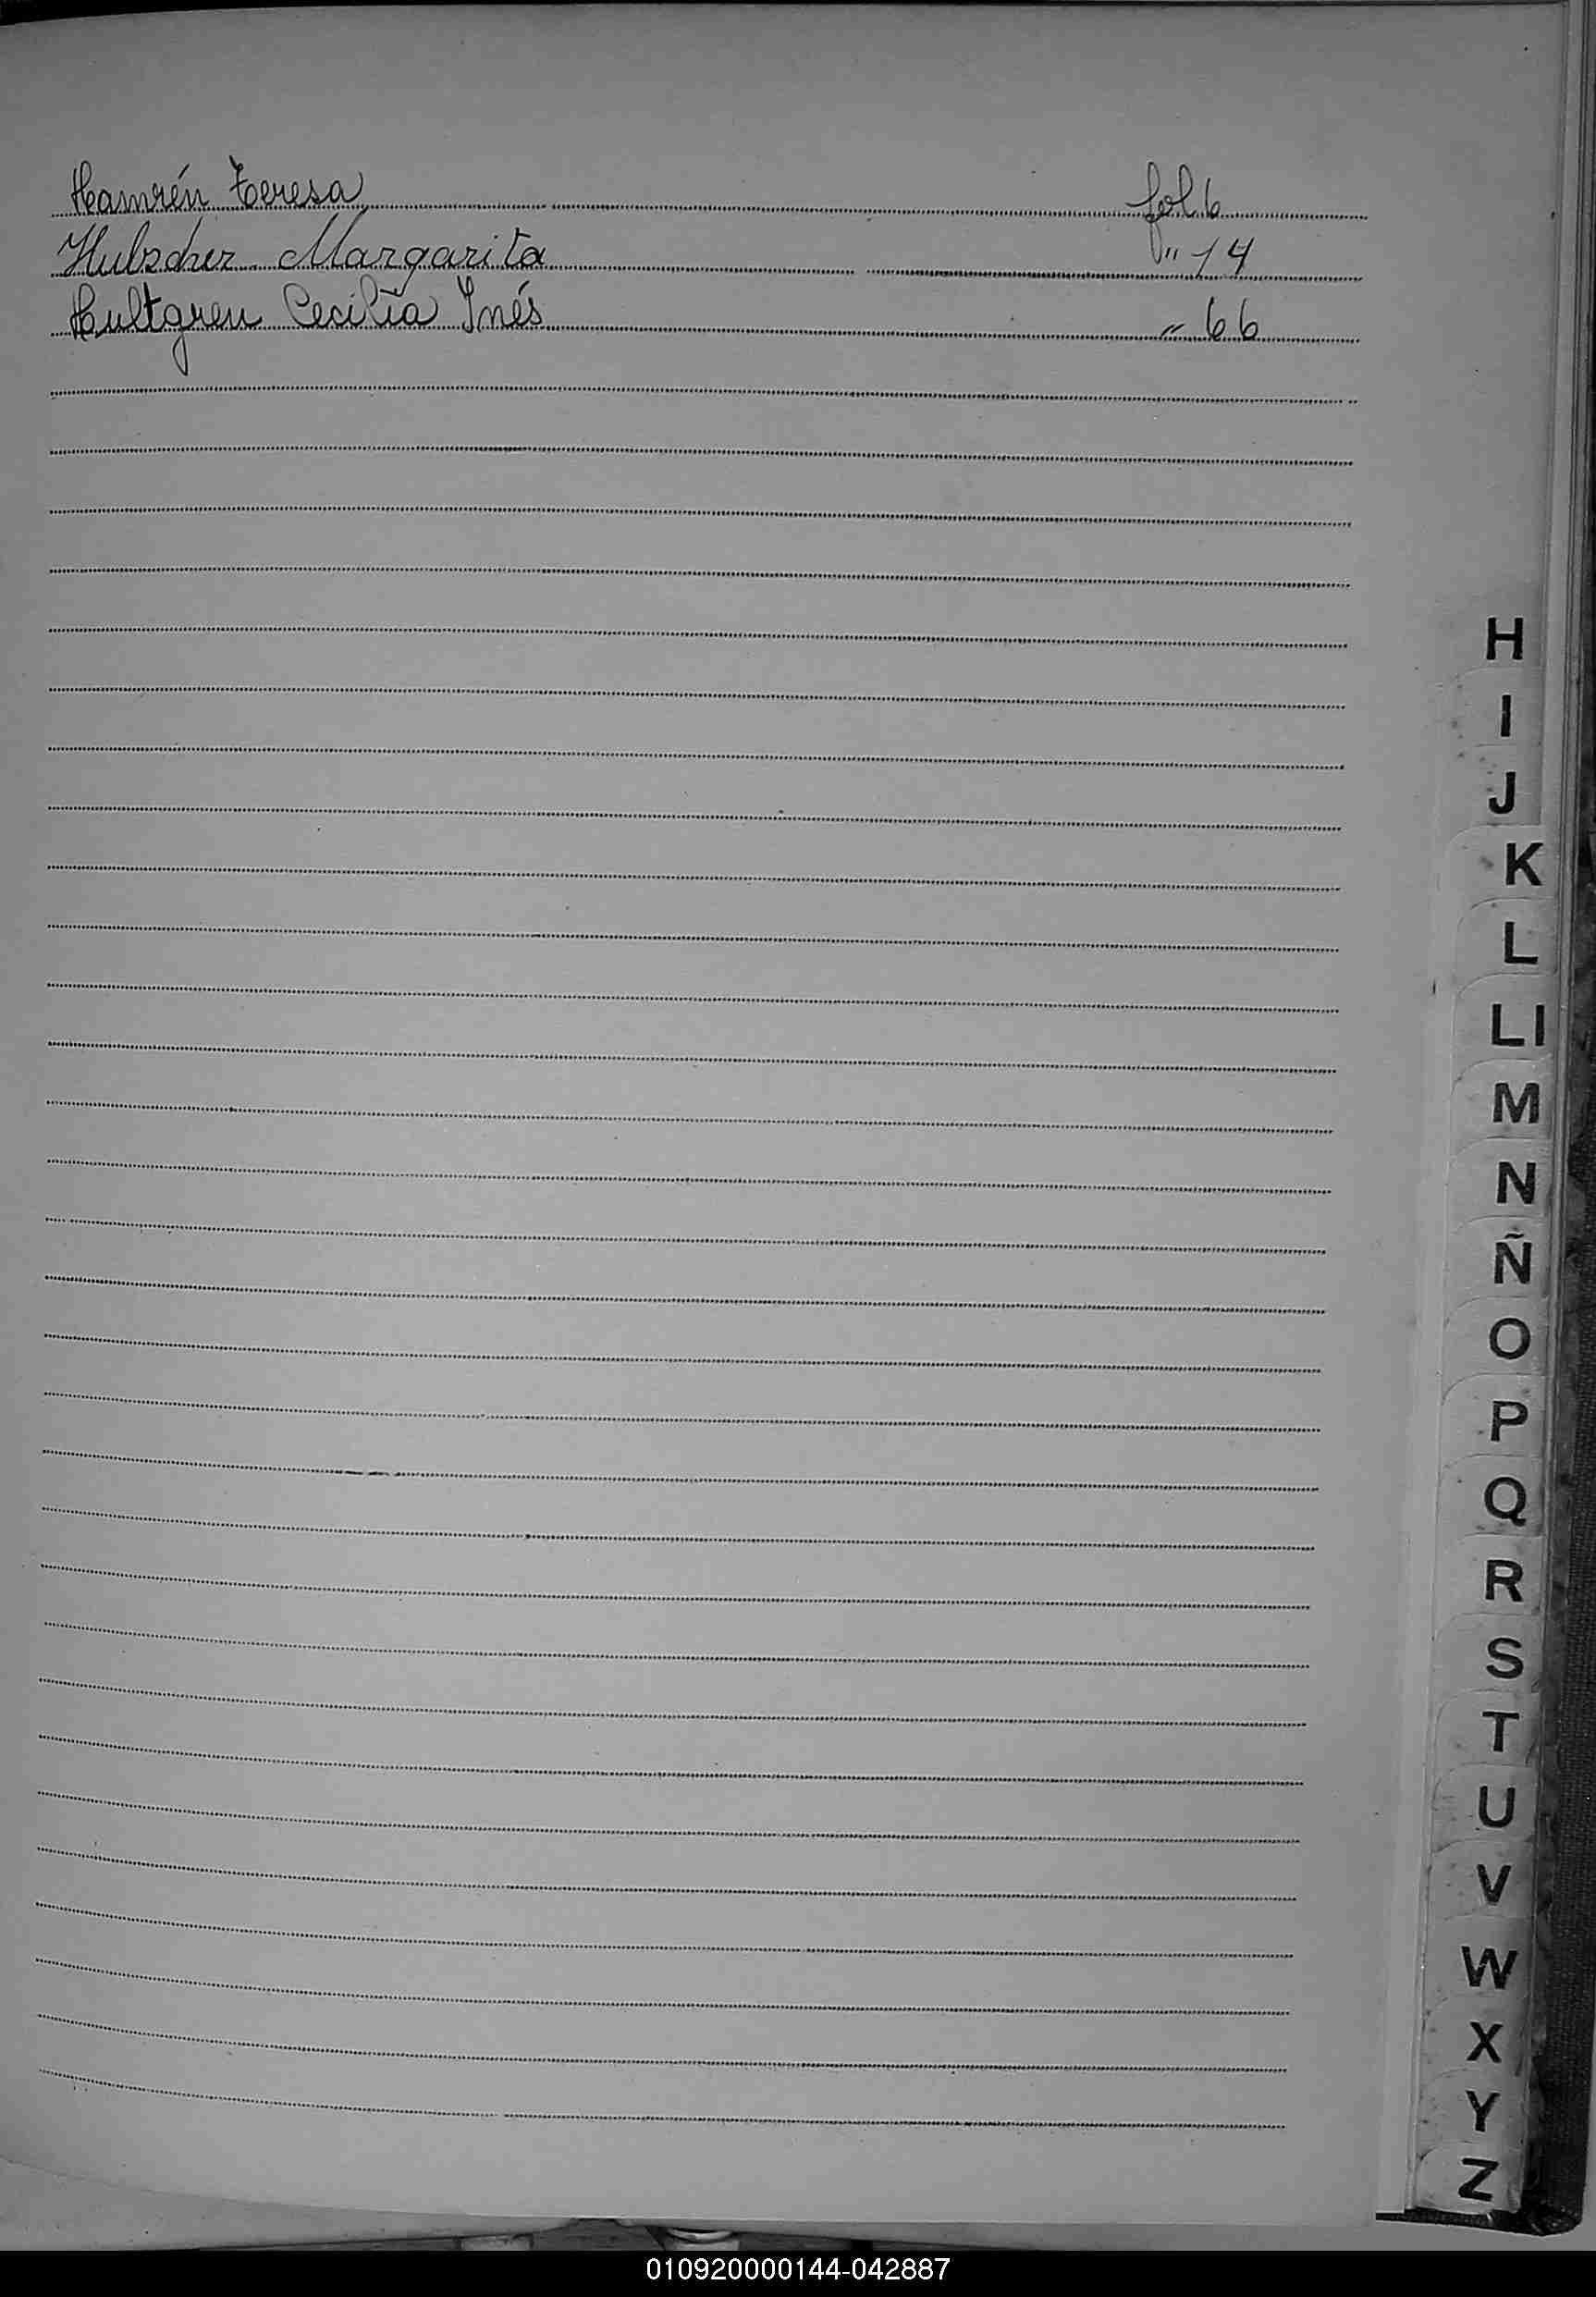 Hamrén Teresa fol 6
Hubscher Margarita " 14
Hultgren Cecilia Inés " 66
H
I
J
K
L
Ll
M
N
Ñ
O
P
Q
R
S
T
U
V
W
X
Y
Z
010920000144-042887